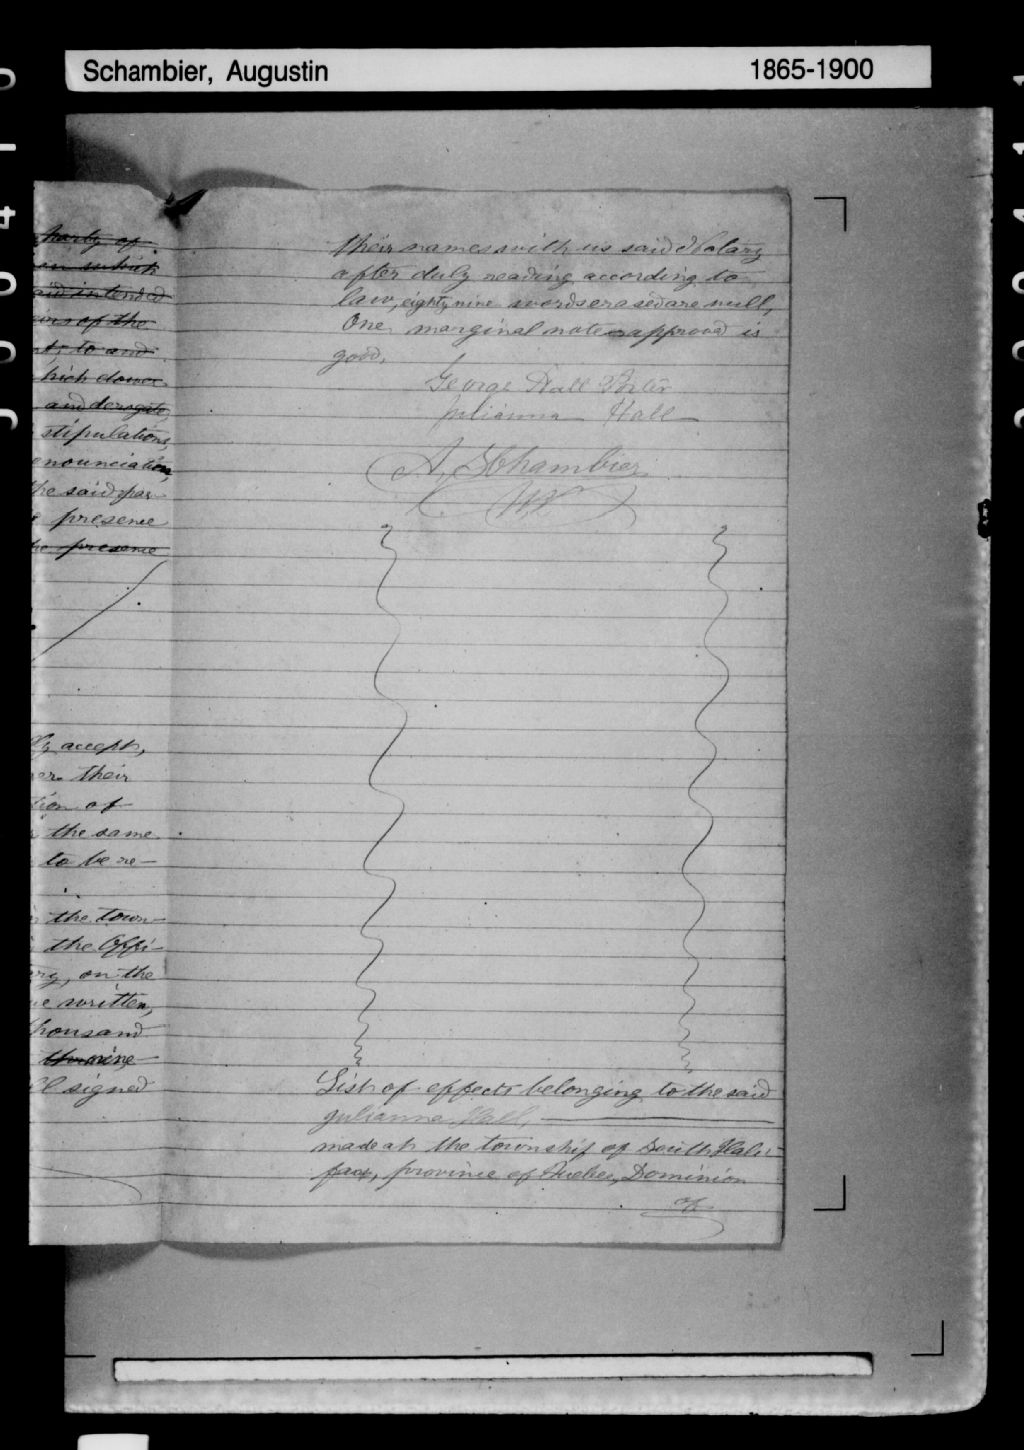 Schambier, Augustin 1865-1900
party of
on which
aid intended
eirs of the
t, to and
hich dower
and derogate,
stipulations,
enounciation,
the said par-
presence
the presence
ly accept,
their
tion of
the same
to be re-
the town-
the Offi-
ry, on the
ve written,
thousand
nine
ll signed
their names with us said Notary
after duly reading according to
law, eighty nine words erased are null,
One marginal note approved is
good,
George Hall Porter
Julianna Hall
A. Schambier
N.P.
List of effects belonging to the said
Julianna Hall,
made at the township of South Hali-
fax, province of Quebec, Dominion
of